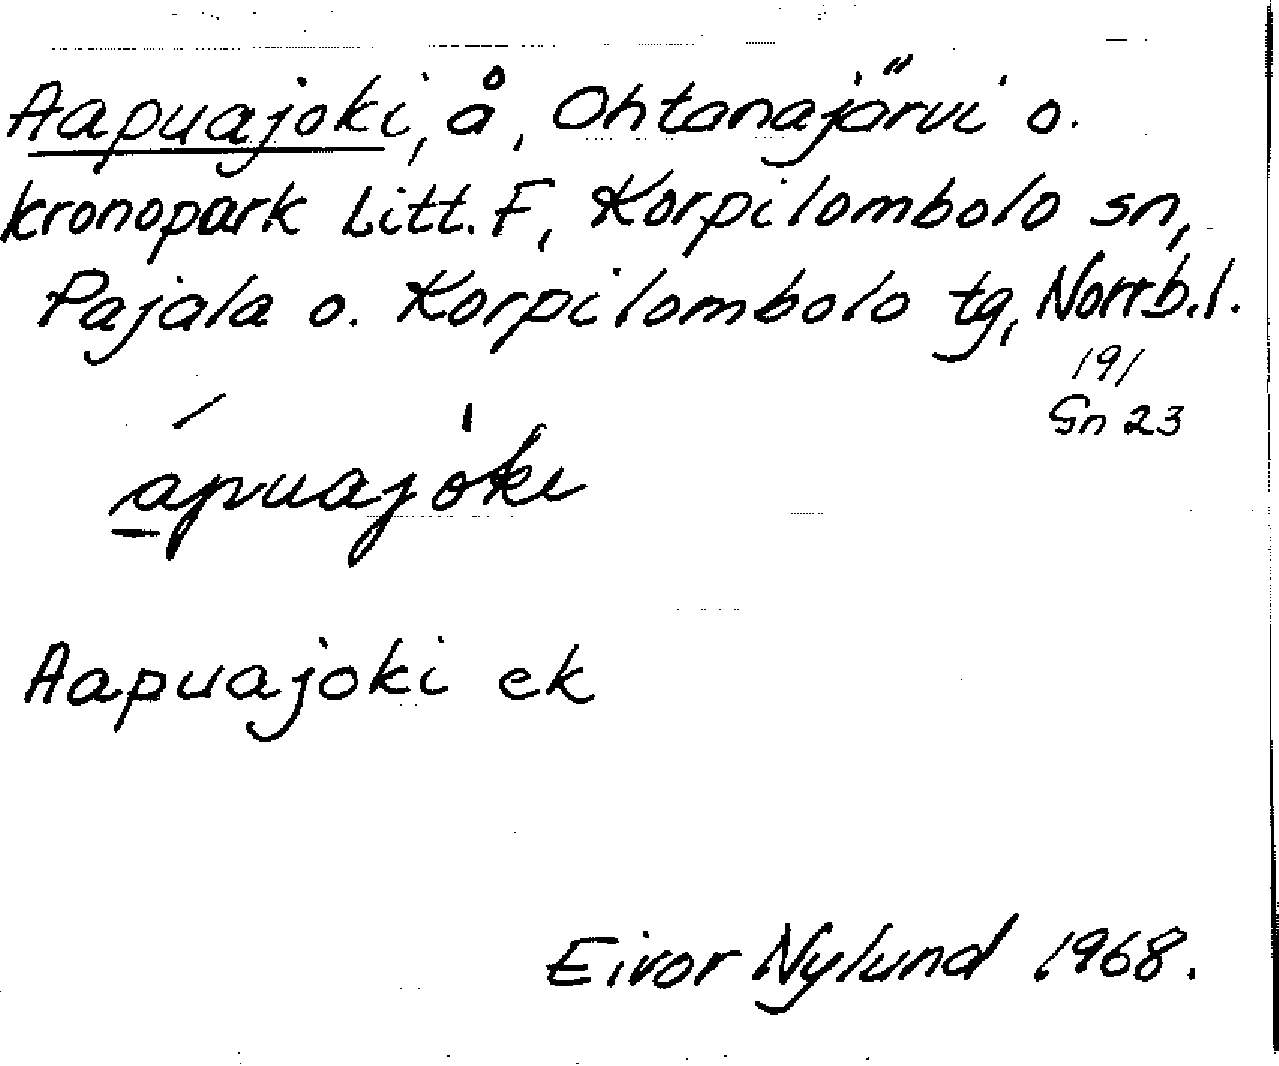 Aapuajoki, å, Ohtanajärvi o.
kronopark Litt. F, Korpilombolo sn,
Pajala o. Korpilombolo tg, Norrb.l.
191
Gn 23
a̱puajoki
Aapuajoki ek
Eivor Nylund 1968.